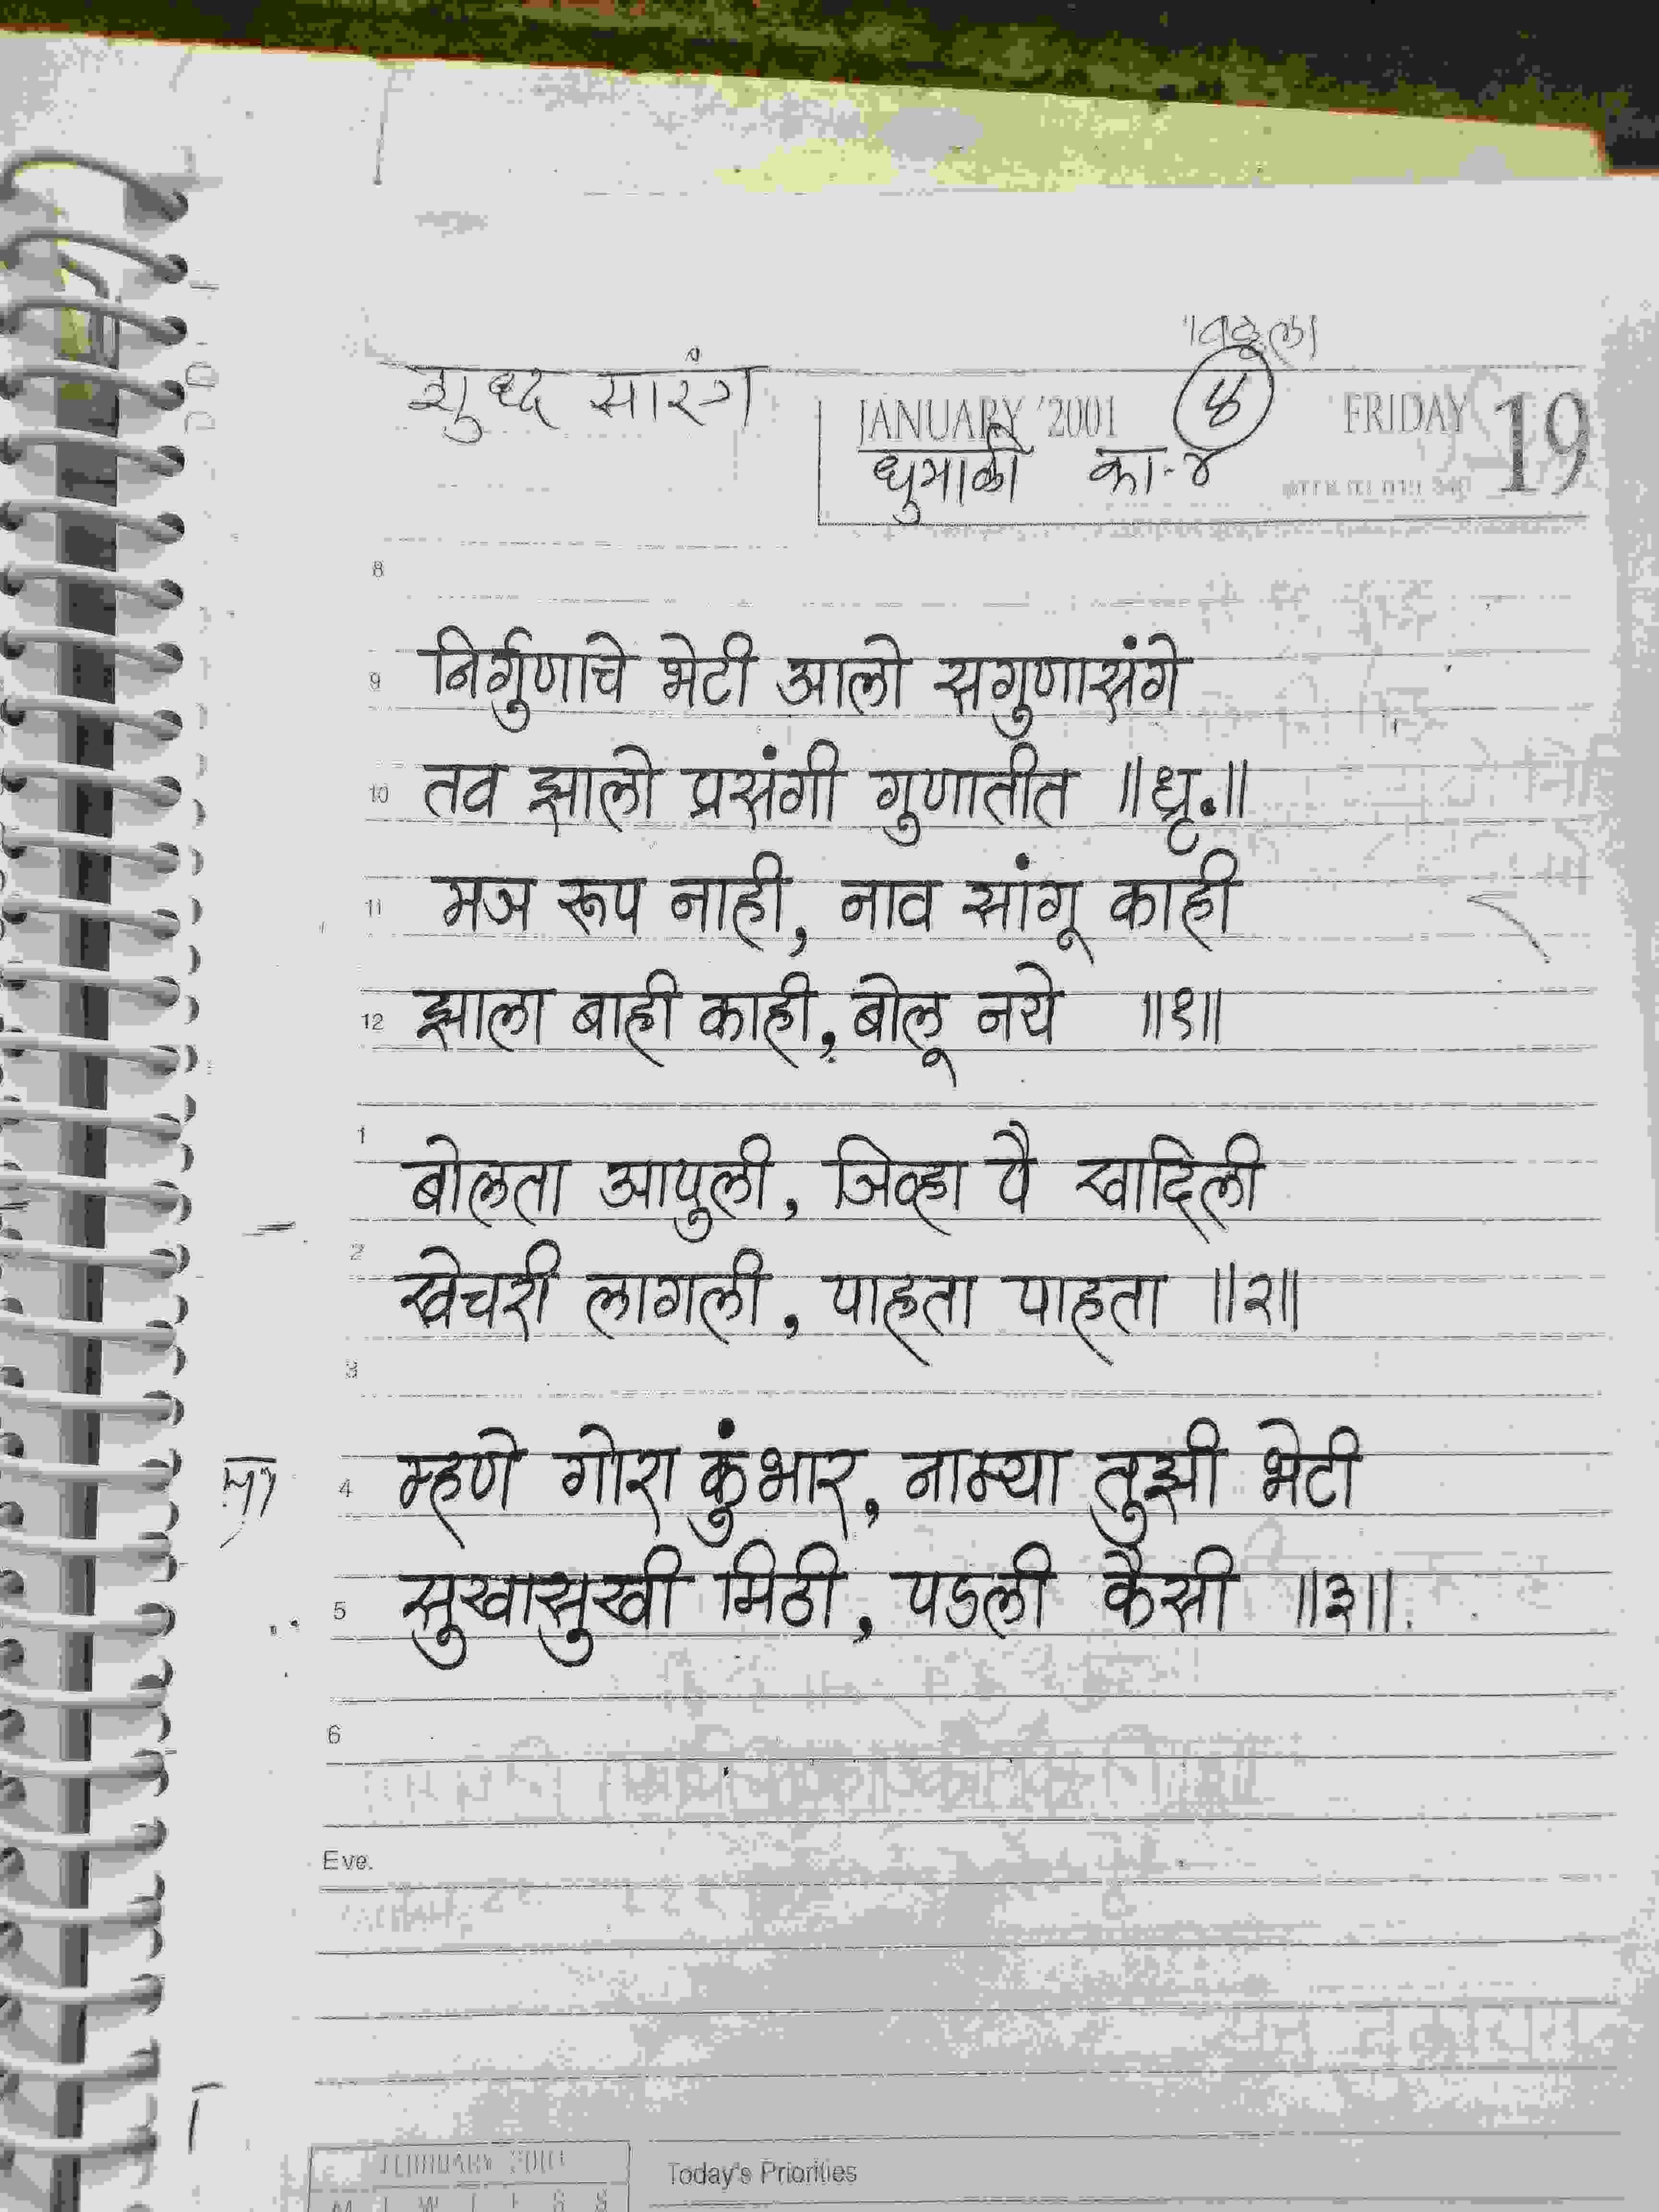 विठ्ठला
शुध्द सारंग
JANUARY '2001 ४ FRIDAY 19
धुमाळी का-४
8
9 निर्गुणाचे भेटी आलो सगुणासंगे
10 तव झालो प्रसंगी गुणातीत ॥धृ.॥
11 मज रूप नाही, नाव सांगू काही
12 झाला बाही काही, बोलू नये ॥१॥
1
बोलता आपुली, जिव्हा पै खादिली
2
खेचरी लागली, पाहता पाहता ॥२॥
3
4 म्हणे गोरा कुंभार, नाम्या तुझी भेटी
5 सुखासुखी मिठी, पडली कैसी ॥३॥.
6
Eve.
FEBRUARY 2001
Today's Priorities
M T W T F S S